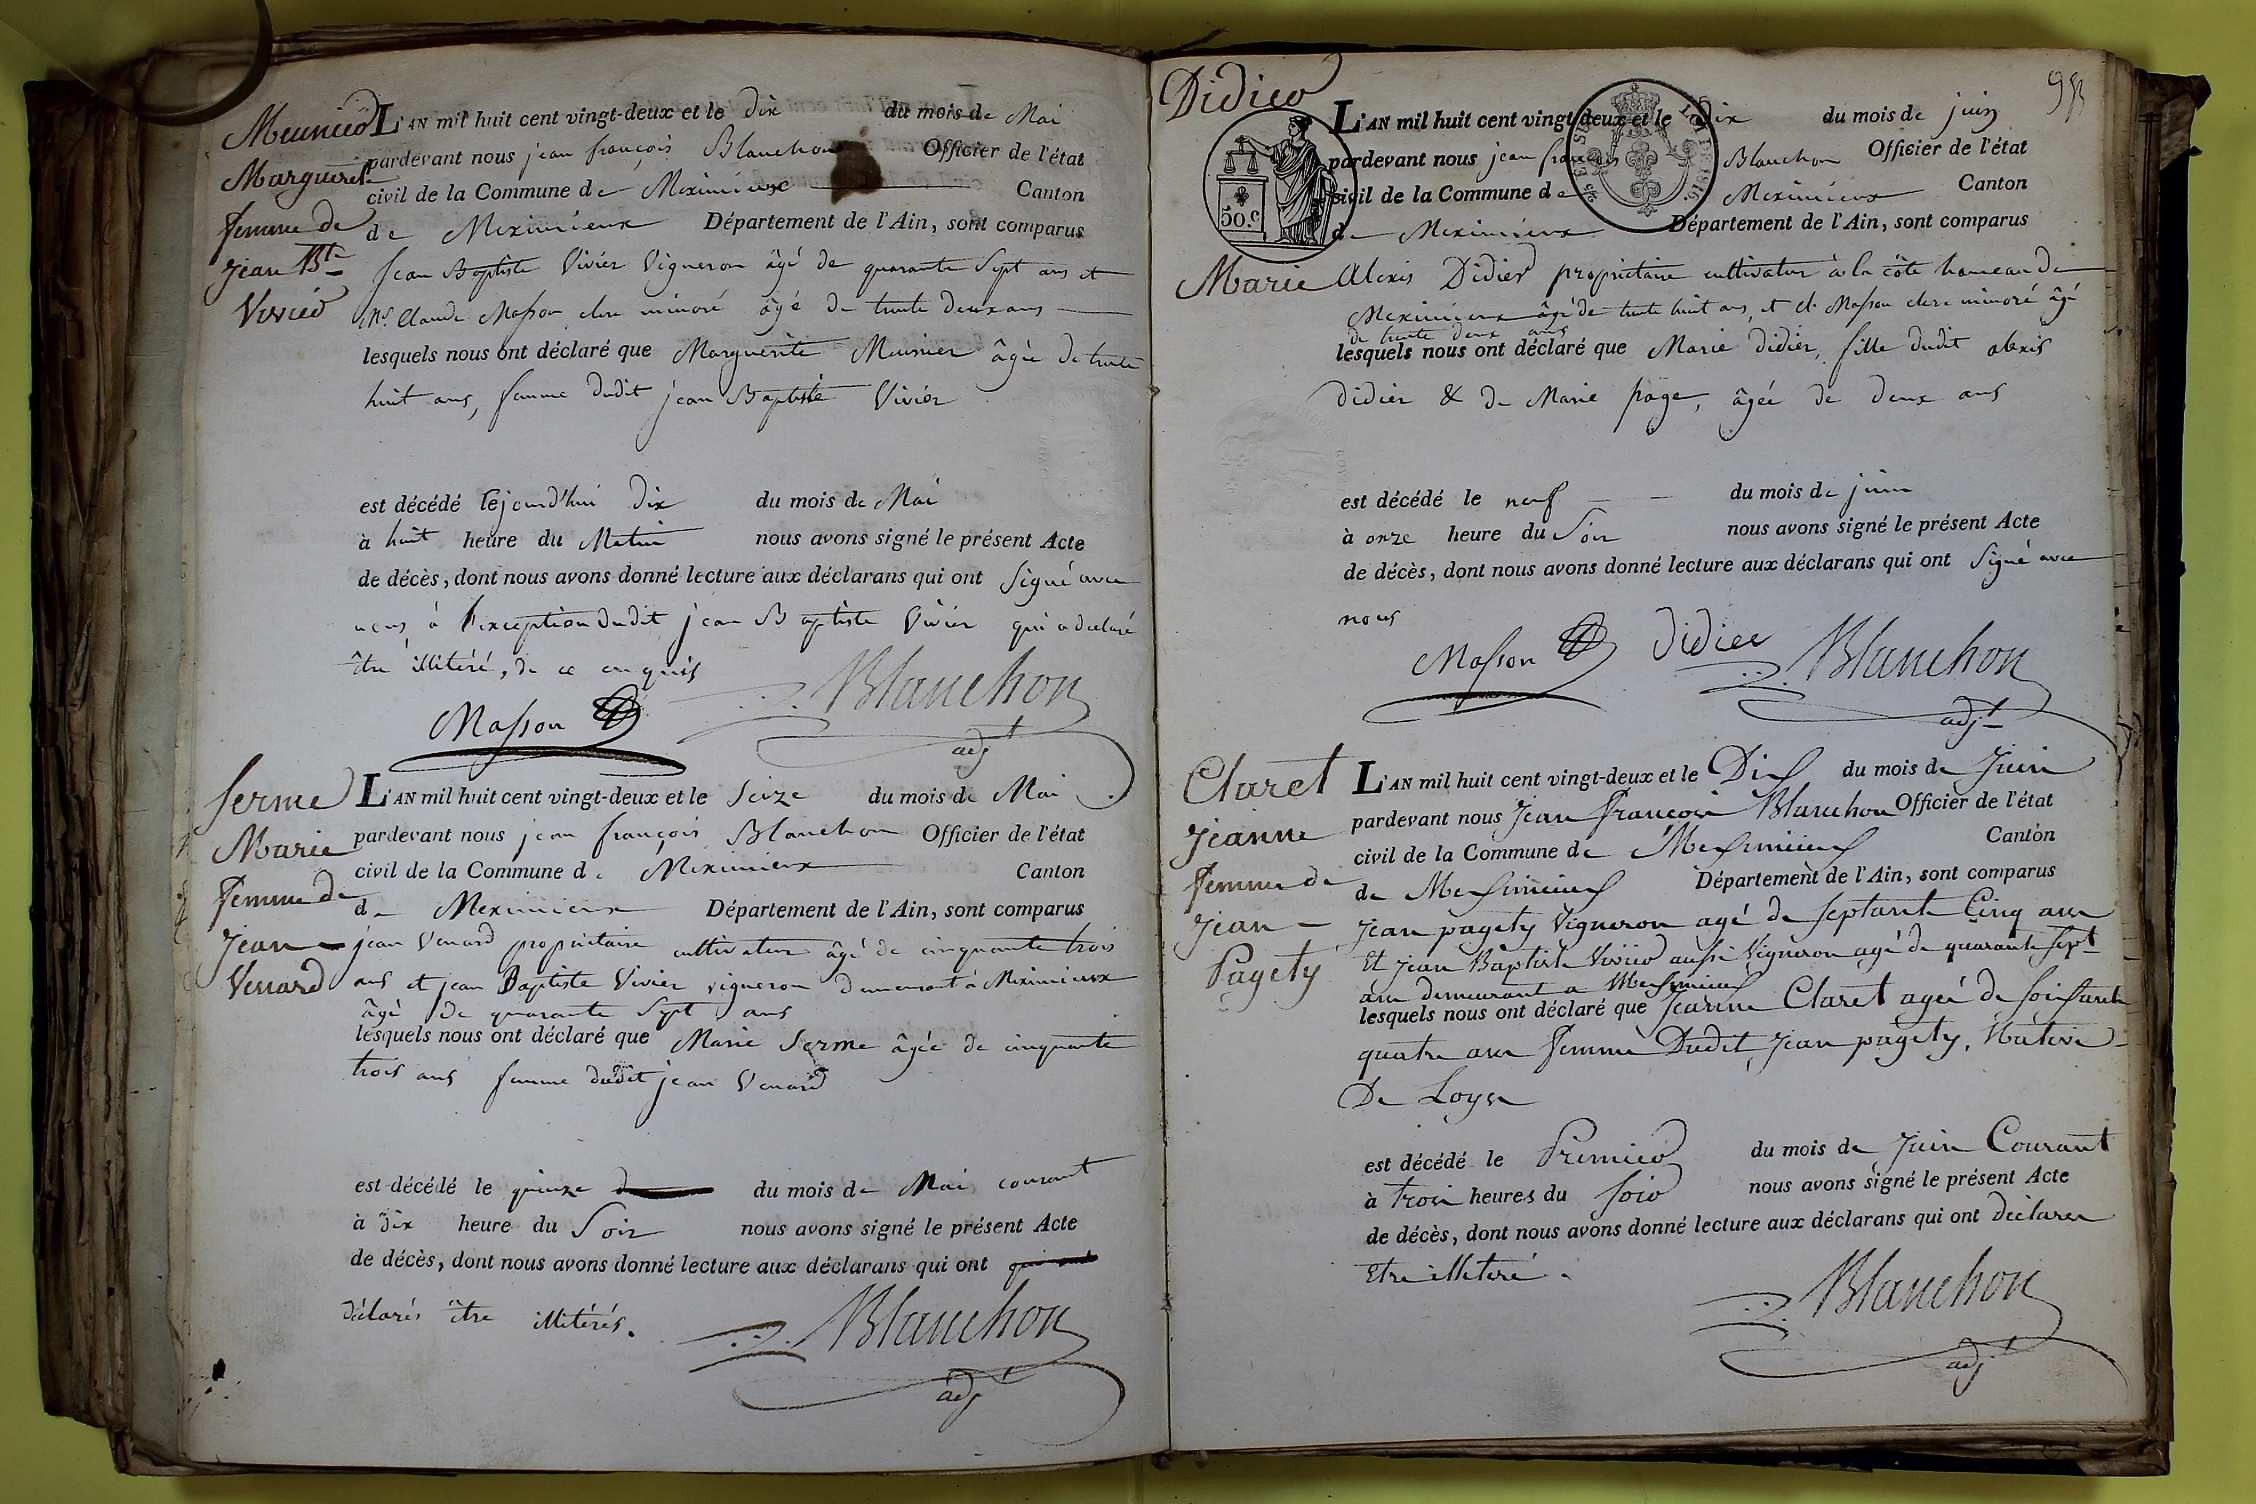 Meunier
Marguerite
femme de
Jean Bte
Vivier
L'AN mil huit cent vingt-deux et le dix du mois de Mai
pardevant nous jean françois Blanchon Officier de l'état
civil de la Commune de Meximieux Canton
de Meximieux Département de l'Ain, sont comparus
Jean Baptiste Vivier Vigneron âgé de quarante Sept ans et
Mr Claude Masson clerc minoré âgé de trente deux ans
lesquels nous ont déclaré que Marguerite Meunier âgée de trente
huit ans, femme dudit jean Baptiste Vivier
est décédé lejourd'hui dix du mois de Mai
à huit heure du Matin nous avons signé le présent Acte
de décès, dont nous avons donné lecture aux déclarans qui ont Signé avec
nous à l'exception dudit jean Baptiste Vivier qui a declaré
être illitéré, de ce enquis
Masson Blanchon
adjt
Serme
Marie
femme de
Jean
Venard
L'AN mil huit cent vingt-deux et le Seize du mois de Mai
pardevant nous jean françois Blanchon Officier de l'état
civil de la Commune de Meximieux Canton
de Meximieux Département de l'Ain, sont comparus
jean Venard propriétaire cultivateur âgé de cinquante trois
ans et jean Baptiste Vivier vigneron demeurant à Meximieux
âgé de quarante Sept ans
lesquels nous ont déclaré que Marie Serme âgée de cinquante
trois ans femme dudit jean Venard
est décédé le quinze du mois de Mai courant
à dix heure du Soir nous avons signé le présent Acte
de décès, dont nous avons donné lecture aux déclarans qui ont qui ont
déclarés être illitérés.
Blanchon
adjt
Didier
Marie
50.c
L'AN mil huit cent vingt-deux et le dix du mois de juin
pardevant nous jean françois Blanchon Officier de l'état
civil de la Commune de Meximieux Canton
de Meximieux Département de l'Ain, sont comparus
Alexis Didier propriétaire cultivateur à la côte hameau de
Meximieux âgé de trente huit ans, et Cl. Masson clerc minoré âgé
de trente deux ans
lesquels nous ont déclaré que Marie didier, fille dudit alexis
didier & de Marie page, âgée de deux ans
est décédé le neuf du mois de juin
à onze heure du Soir nous avons signé le présent Acte
de décès, dont nous avons donné lecture aux déclarans qui ont Signé avec
nous
Masson didier Blanchon
adjt
Claret
Jeanne
femme de
Jean
Pagety
L'AN mil huit cent vingt-deux et le Dix du mois de Juin
pardevant nous Jean françois Blanchon Officier de l'état
civil de la Commune de Meximieux Canton
de Meximieux Département de l'Ain, sont comparus
Jean pagety Vigneron agé de septante Cinq ans
Et Jean Baptiste Vivier aussi Vigneron agé de quarante sept
ans demeurant a Meximieux
lesquels nous ont déclaré que Jeanne Claret ageé de soixante
quatre ans femme Dudit Jean pagety, Native
De Loyes
est décédé le Premier du mois de Juin Courant
à trois heures du soir nous avons signé le présent Acte
de décès, dont nous avons donné lecture aux déclarans qui ont déclarer
Etre illiteré.
Blanchon
adjt